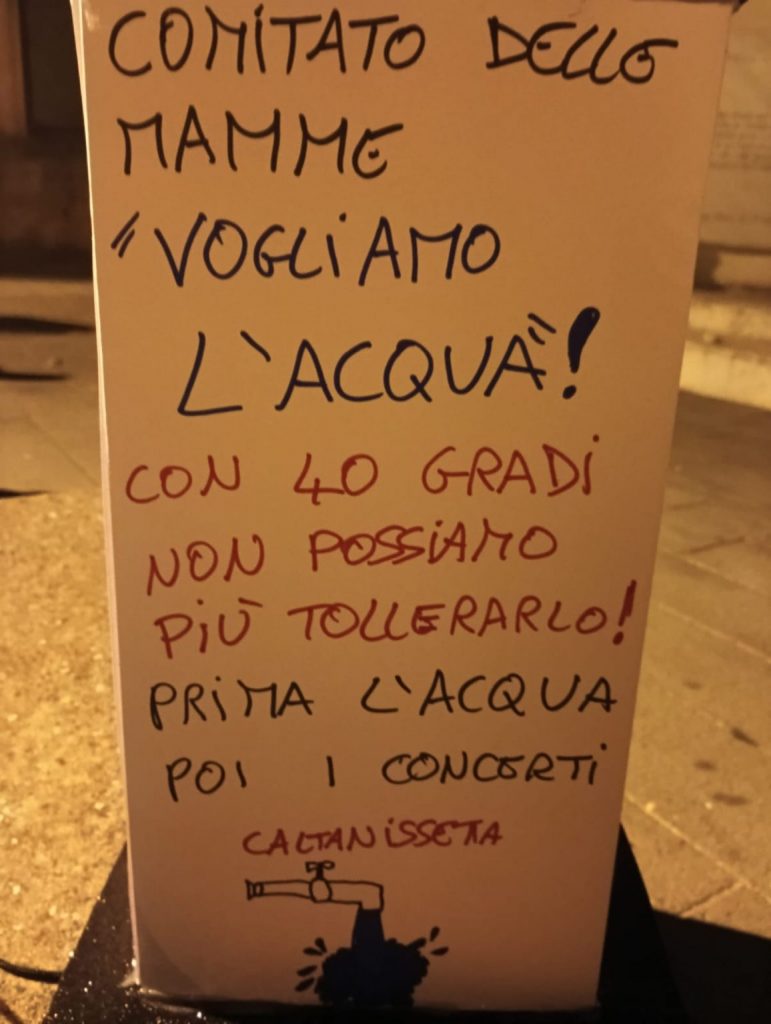 COMITATO DELLE
MAMME
"VOGLIAMO
L'ACQUA"!
CON 40 GRADI
NON POSSIAMO
PIÙ TOLLERARLO!
PRIMA L'ACQUA
POI I CONCERTI
CALTANISSETTA